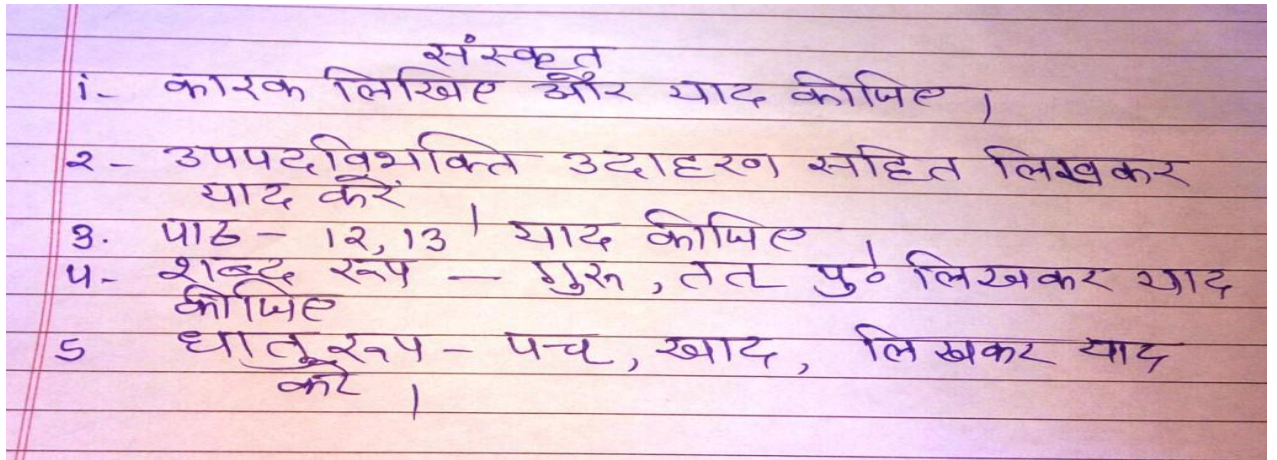 संस्कृत
i- कारक लिखिए और याद कीजिए।
२- उपपदविभक्ति उदाहरण सहित लिखकर
याद करें।
3. पाठ - 12, 13 याद कीजिए।
4- शब्द रूप - गुरू, तत पु० लिखकर याद
कीजिए
5 धातु रूप - पच, खाद, लिखकर याद
करे।